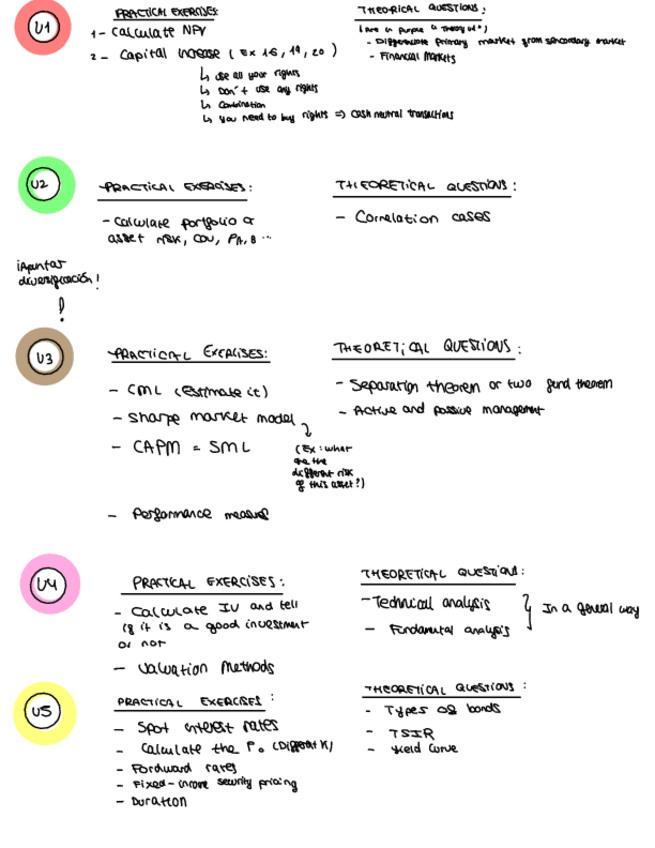 U1
PRACTICAL EXERCISES:
1- Calculate NPV
2- Capital increase (Ex 16, 19, 20)
↳ Use all your rights
↳ Don't use any rights
↳ Combination
↳ You need to buy rights => cash neutral transactions
THEORICAL QUESTIONS:
- Differentiate primary market from secondary market
- Financial Markets
U2
PRACTICAL EXERCISES:
- Calculate portfolio or
asset risk, COV,
THEORETICAL QUESTIONS:
- Correlation cases
¡Apuntar
diversificación!
!
U3
PRACTICAL EXERCISES:
- CML (estimate it)
- Sharpe market model
- CAPM = SML
(Ex: what
are the
different risk
of this asset?)
- Performance measure
THEORETICAL QUESTIONS:
- Separation theorem or two fund theorem
- Active and passive management
U4
PRACTICAL EXERCISES:
- Calculate IV and tell
if it is a good investment
or not
- Valuation Methods
THEORETICAL QUESTIONS:
- Technical analysis
- Fundamental analysis
In a general way
U5
PRACTICAL EXERCISES:
- Spot interest rates
- Calculate the P₀ (Different K)
- Fordward rates
- Fixed-income security pricing
- Duration
THEORETICAL QUESTIONS:
- Types of bonds
- TSIR
- Yield curve